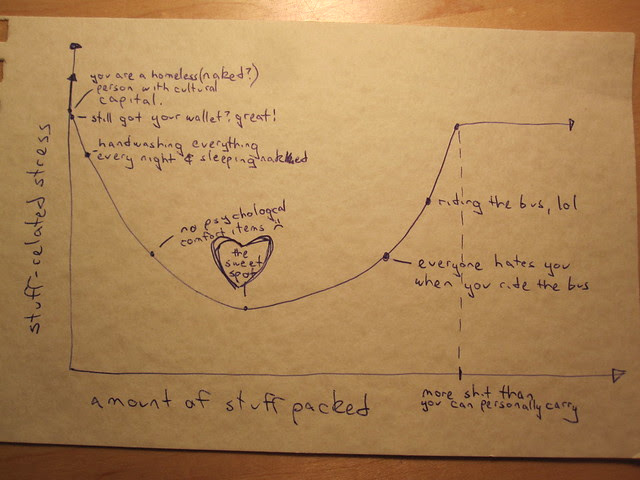 you are a homeless(naked?)
person with cultural
capital.
still got your wallet? great!
handwashing everything
every night & sleeping naked
no psychological
comfort items :(
the
sweet
spot
riding the bus, lol
everyone hates you
when you ride the bus
stuff-related stress
amount of stuff packed
more shit than
you can personally carry